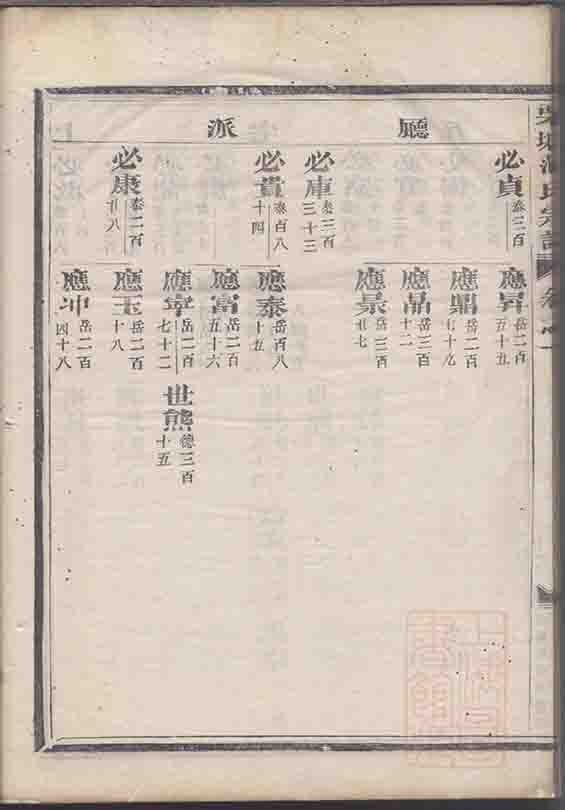 廳派
必貞 泰三百
必庫 泰三百三十三
必貴 泰百八十四
必康 泰二百廿八
應昇 岳二百五十五
應鼎 岳二百七十九
應晶 岳三百十二
應景 岳三百廿七
應泰 岳百八十五
應富 岳二百五十六
應寧 岳二百七十二
應玉 岳二百十八
應坤 岳二百四十八
世熊 德三百十五